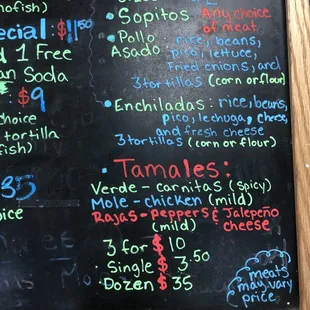 nofish)
ecial: $11.50
d 1 Free
an Soda
: $9
hoice
tortilla
fish)
35
oice
• Sopitos: Any choice
of meat
• Pollo
Asado:
rice, beans,
pico, lettuce,
Fried onions, and
3 tortillas (corn or flour)
• Enchiladas: rice, beans,
pico, lechuga, cheese,
and fresh cheese
3 tortillas (corn or flour)
• Tamales:
Verde - carnitas (spicy)
Mole - chicken (mild)
Rajas - Peppers & Jalepeño
(mild) cheese
• 3 for $10
• Single $3.50
• Dozen $35
meats
may vary
price